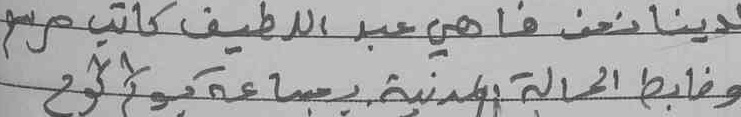 لدينا نحن فاهي عبد اللطيف كاتب مرسم
وضابط الحالة المدنية بجماعة